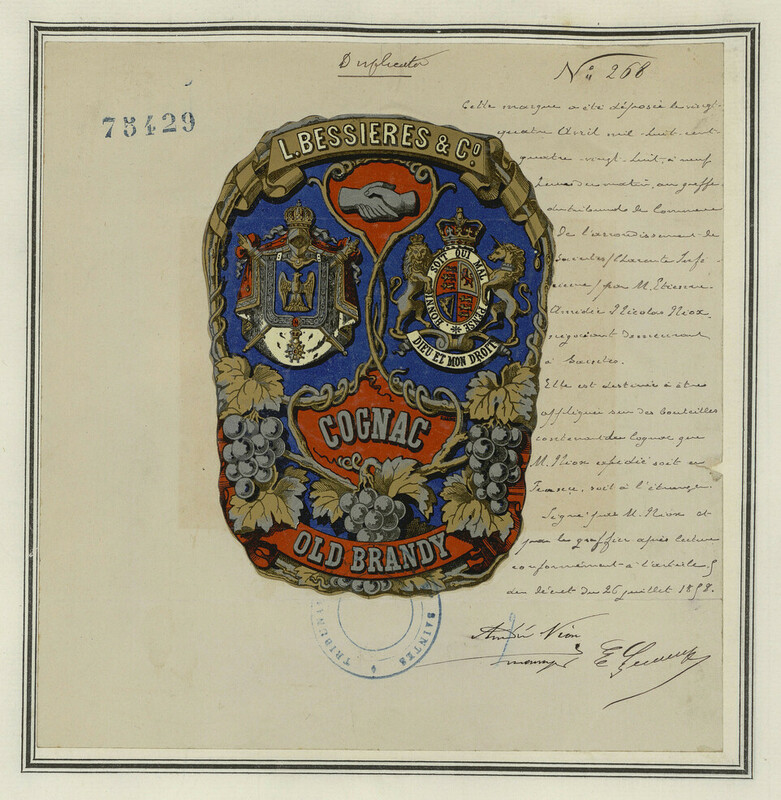 Duplicata
N° 268
75429
L. BESSIERES & Cº
SOIT QUI MAL
PENSE * HONNI
DIEU ET MON DROIT
COGNAC
OLD BRANDY
Cette marque a été déposée le vingt-
quatre Avril mil huit cent
quatre vingt huit, à neuf
heures du matin, au greffe
du tribunal de Commerce
De l'arrondissement de
Saintes (Charente Infé-
rieure) par M. Etienne
Amédée Nicolas Niox
négociant demeurant
à Saintes.
Elle est destinée à être
appliquée sur des bouteilles
contenant du Cognac que
M. Niox expédie soit en
France, soit à l'étranger.
Signé par M. Niox et
par le greffier après lecture
conformément à l'article 5
du décret du 26 juillet 1858.
TRIBUNAL
SAINTES